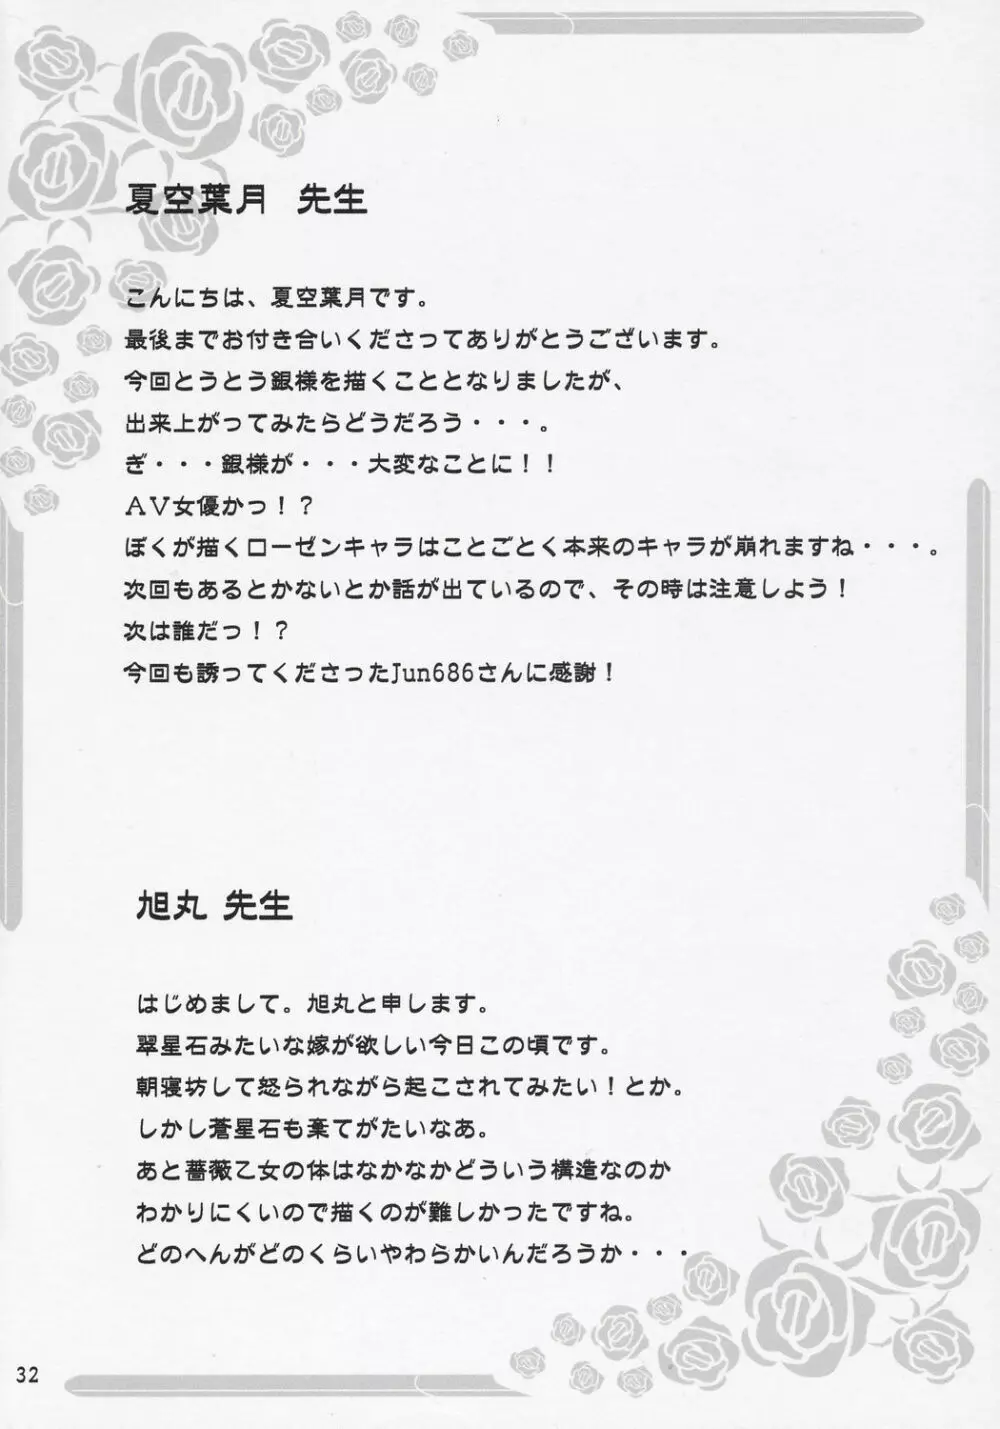 夏空葉月 先生
こんにちは、夏空葉月です。
最後までお付き合いくださってありがとうございます。
今回とうとう銀様を描くこととなりましたが、
出来上がってみたらどうだろう・・・。
ぎ・・・銀様が・・・大変なことに！！
ＡＶ女優かっ！？
ぼくが描くローゼンキャラはことごとく本来のキャラが崩れますね・・・。
次回もあるとかないとか話が出ているので、その時は注意しよう！
次は誰だっ！？
今回も誘ってくださったJun686さんに感謝！
旭丸 先生
はじめまして。旭丸と申します。
翠星石みたいな嫁が欲しい今日この頃です。
朝寝坊して怒られながら起こされてみたい！とか。
しかし蒼星石も棄てがたいなあ。
あと薔薇乙女の体はなかなかどういう構造なのか
わかりにくいので描くのが難しかったですね。
どのへんがどのくらいやわらかいんだろうか・・・
32